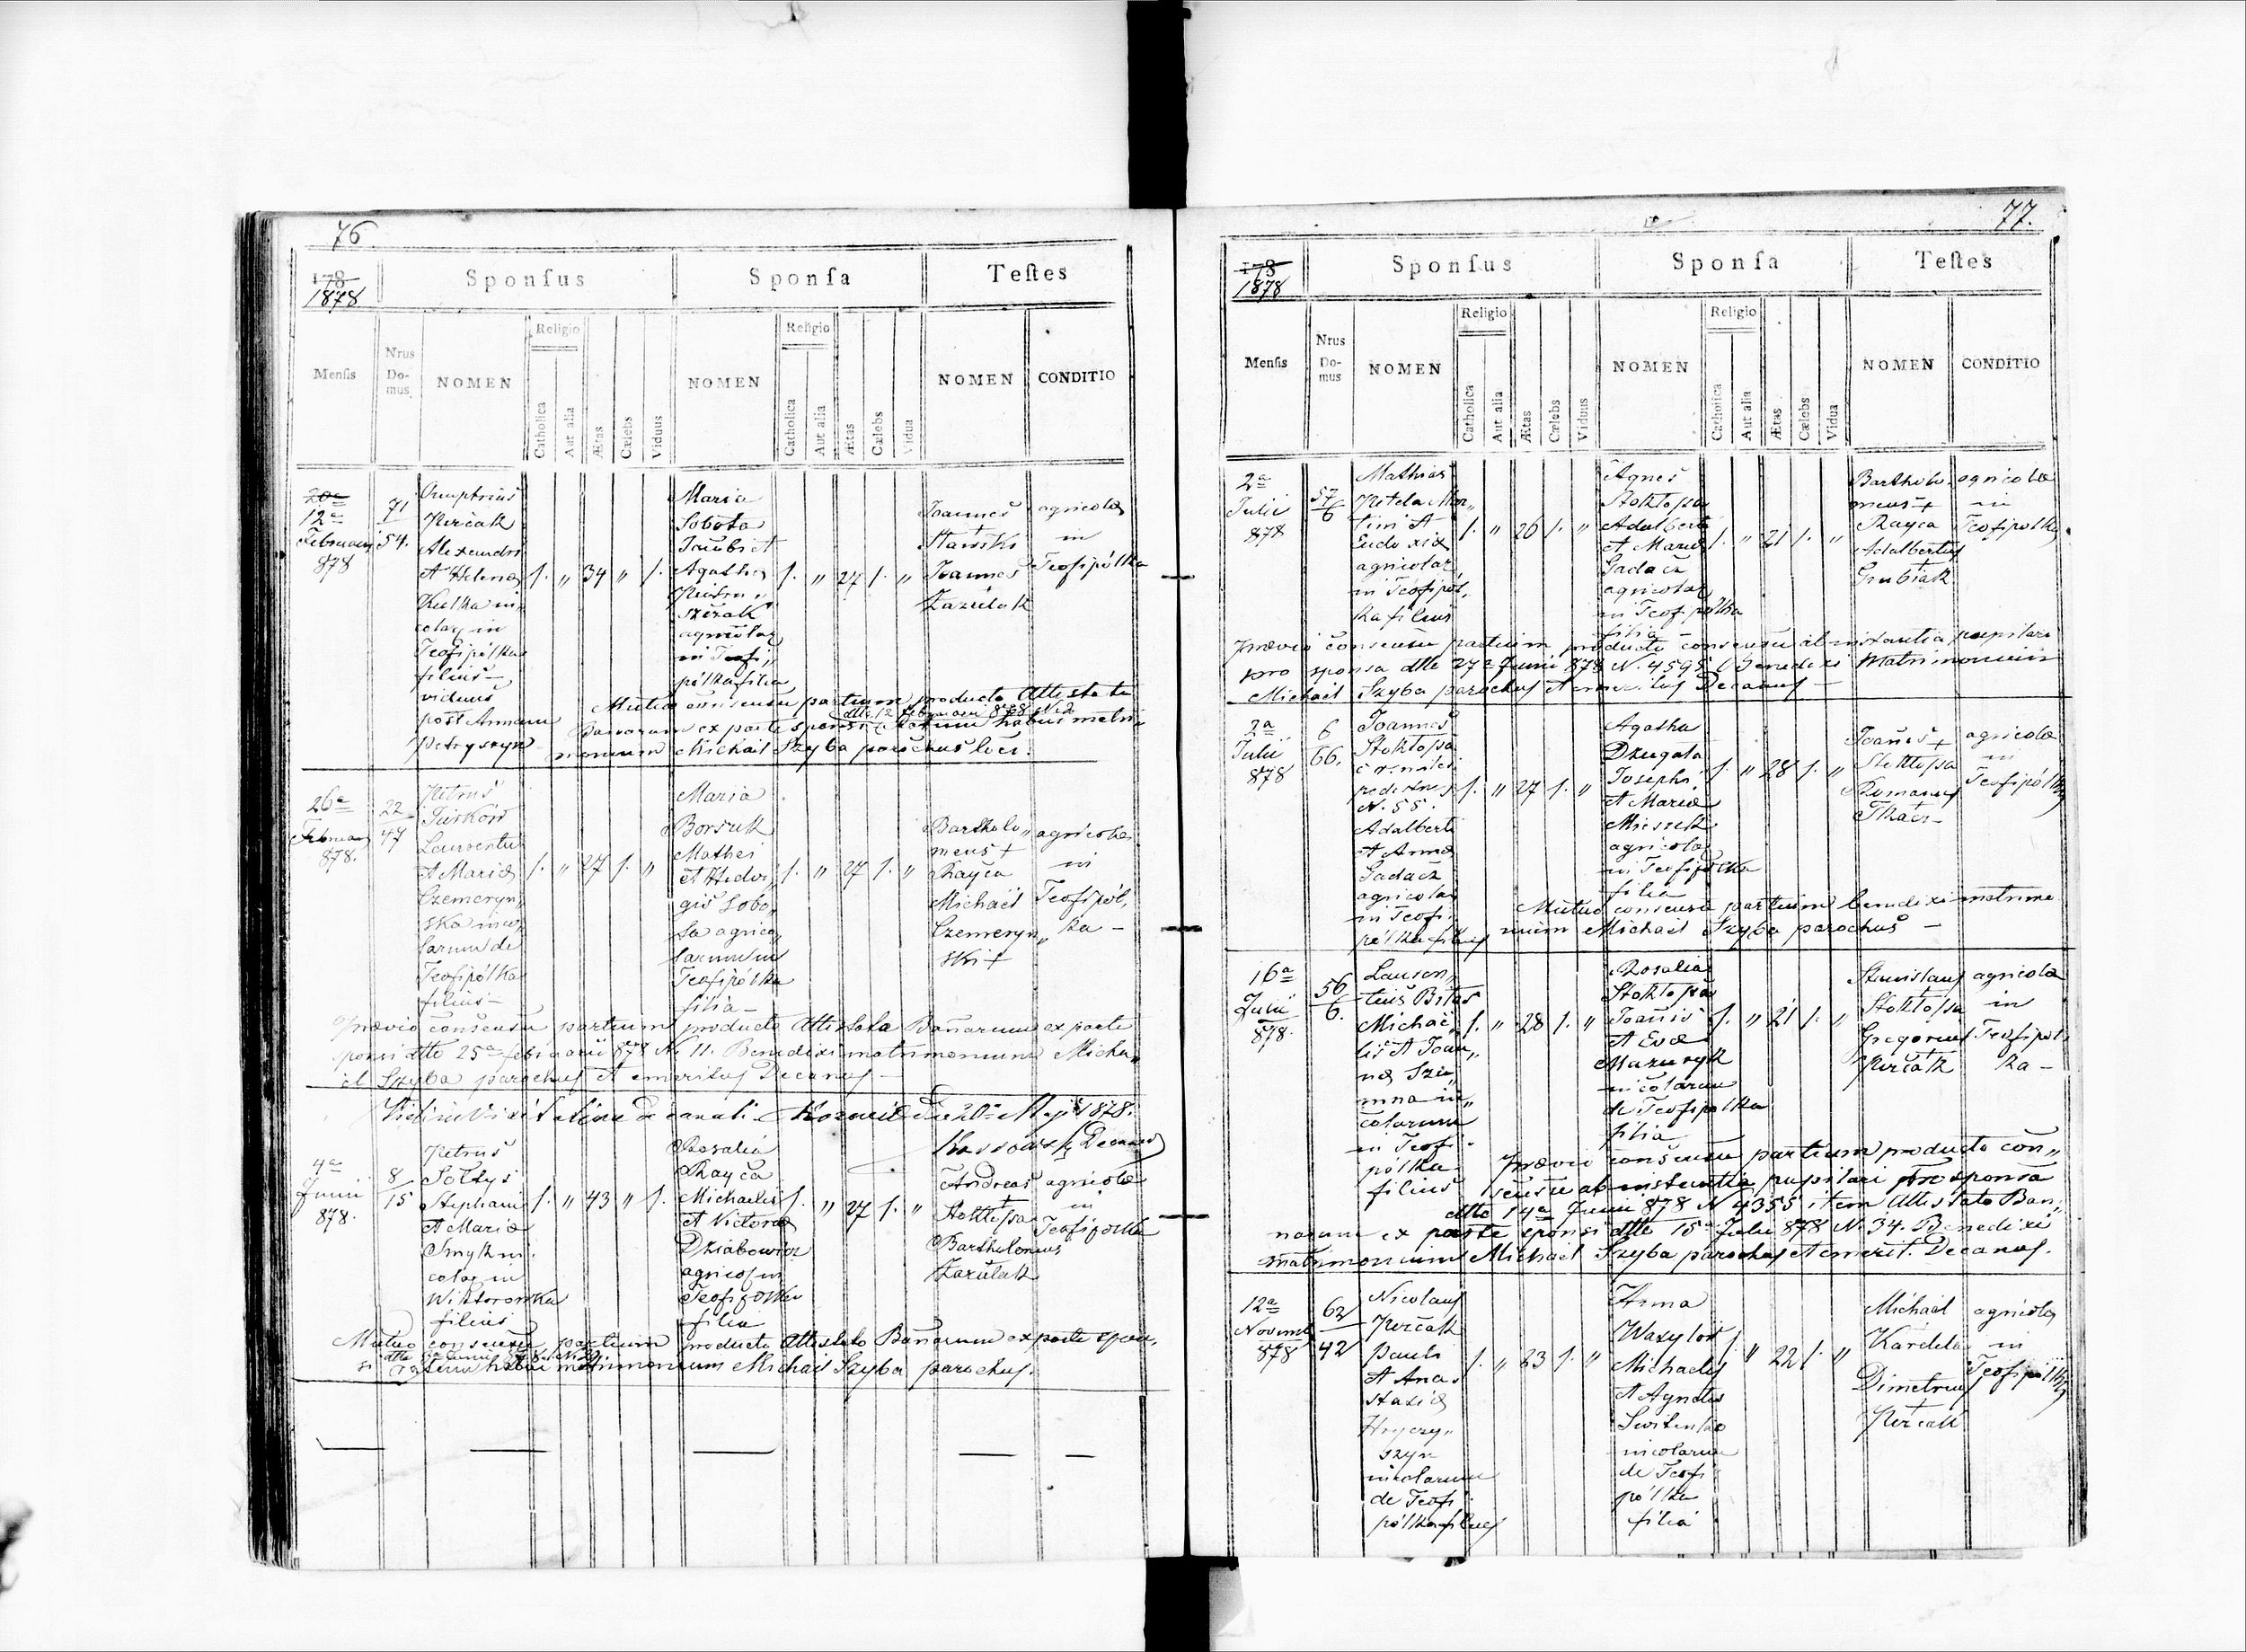 76.
178
1878
Sponſus
Sponſa
Teſtes
Menſis
Nrus Do- mus
NOMEN
Religio
Catholica
Aut alia
Ætas
Cælebs
Viduus
NOMEN
Religio
Catholica
Aut alia
Ætas
Cælebs
Vidua
NOMEN
CONDITIO
20a
12a
Februarii
878
71
54.
Kerčak
Alexandri
et Helena
Teofipólka
filius
viduus
post Annam
Petryszyn
1. „ 34 „ 1.
Maria
Sobota
Jacobi et
Agatha
agricolar
in Teofi„
pólka filia
1. „ 27 1. „
Joannes +
Stawski
Joannes
Zazulak
agricolæ
in
Teofipólka
Mutuo consensu partium producto Attestato
dtto 12 februarii 878 N. 2
Bannorum ex parte sponsi ratum habui matri
monium Michael Szyba parochus loci.
26a
Februarii
878.
22
47
Petrus
Jurków
Laurentii
et Maria
Czemeryn„
ska inco„
larum de
Teofipólka
filius –
1. „ 27 1. „
Maria
Borsuk
Mathei
et Hedvi„
gis Sobo„
ta agrico„
larum in
Teofipólka
filia –
1. „ 27 1. „
Bartholo„
meus +
Rayca
Michael
Czemeryn„
ski +
agricolæ
in
Teofipól„
ka –
Prævio consensu partium producto Attestato Bañorum ex parte
sponsi dtto 25a februarii 878 N. 11. Benedixi matrimonium Micha„
el Szyba parochus et emeritus Decanus –
Die 20a Maji 1878.
Decanus
4a
Junii
878.
8
15
Petrus
Sołtys
Stephani
et Maria
Smyk in„
colar in
Wiktorowka
filius
1. „ 43 „ 1.
Rosalia
Rayca
Michaelis
et Victoria
Dziabowicz
agricol in
Teofipolka
filia
1. „ 27 1. „
Andreas +
Stokłosa
Bartholomeus
Zazulak
agricolæ
in
Teofipolka
Mutuo consensu partium producto Attestato Bañorum ex parte spon„
si ratum habui matrimonium Michael Szyba parochus.
77.
178
1878
Sponſus
Sponſa
Teſtes
Menſis
Nrus Do- mus
NOMEN
Religio
Catholica
Aut alia
Ætas
Cælebs
Viduus
NOMEN
Religio
Catholica
Aut alia
Ætas
Cælebs
Vidua
NOMEN
CONDITIO
2a
Julii
878
57
6
Mathias
Eudoxia
agricolar
in Teofipól„
ka filius
1. „ 26 1. „
Agnes
Stokłosa
Adalberti
et Maria
Gadacz
agricolar
in Teofipolka
filia
1. „ 21 1. „
Bartholo„
meus +
Rayca
Adalbertus
Grubiak
agricolæ
in
Teofipolka
Prævio consensu partium producto consensu ab instantia pupilari
pro sponsa dtto 27a Junii 878 N. 4595 Benedixi Matrimonium
Michael Szyba parochus et emeritus Decanus –
2a
Julii
878
6
66.
Joannes
Stokłosa
N. 55.
Adalberti
et Anna
Gadacz
agricolar
in Teofi„
pólka filius
1. „ 27 1. „
Agatha
Dzugala
Josephi
et Maria
agricolar
in Teofipolka
filia
1. „ 28 1. „
Joañes +
Stokłosa
Romanus
Tkacz –
agricolæ
in
Teofipólka
Mutuo consensu partium benedixi matrimo
nium Michael Szyba parochus –
16a
Julii
878.
56
6.
Lauren„
tius Bitas
Michae„
lis et Joan„
colarum
in Teofi„
pólka
filius
1. „ 28 1. „
Rosalia
Stokłosa
Joañis
et Eva
Mazuryk
incolarum
de Teofipolka
filia
1. „ 21 1. „
Stanislaus
Stokłosa
Gregorius +
Kerčak
agricolæ
in
Teofipol„
ka –
Prævio consensu partium producto con„
sensu ab instantia pupilari pro sponsa
dtto 14a Junii 878 N 4355 item Attestato Ban„
norum ex parte sponsi dtto 15a Julii 878 N. 34. Benedixi
matrimonium Michael Szyba parochus et emerit. Decanus.
12a
Novemb
878
62
42
Nicolaus
Kerčak
Pauli
et Anas
stasia
Hryczy„
szyn
incolarum
de Teofi
pólka filius
1. „ 23 1. „
Anna
Wasylow
Michaelis
et Agnetis
incolarum
de Teofi
pólka
filia
1. „ 22 1. „
Michael
Kardela
Dimetrius +
Kerčak
agricolæ
in
Teofipólka